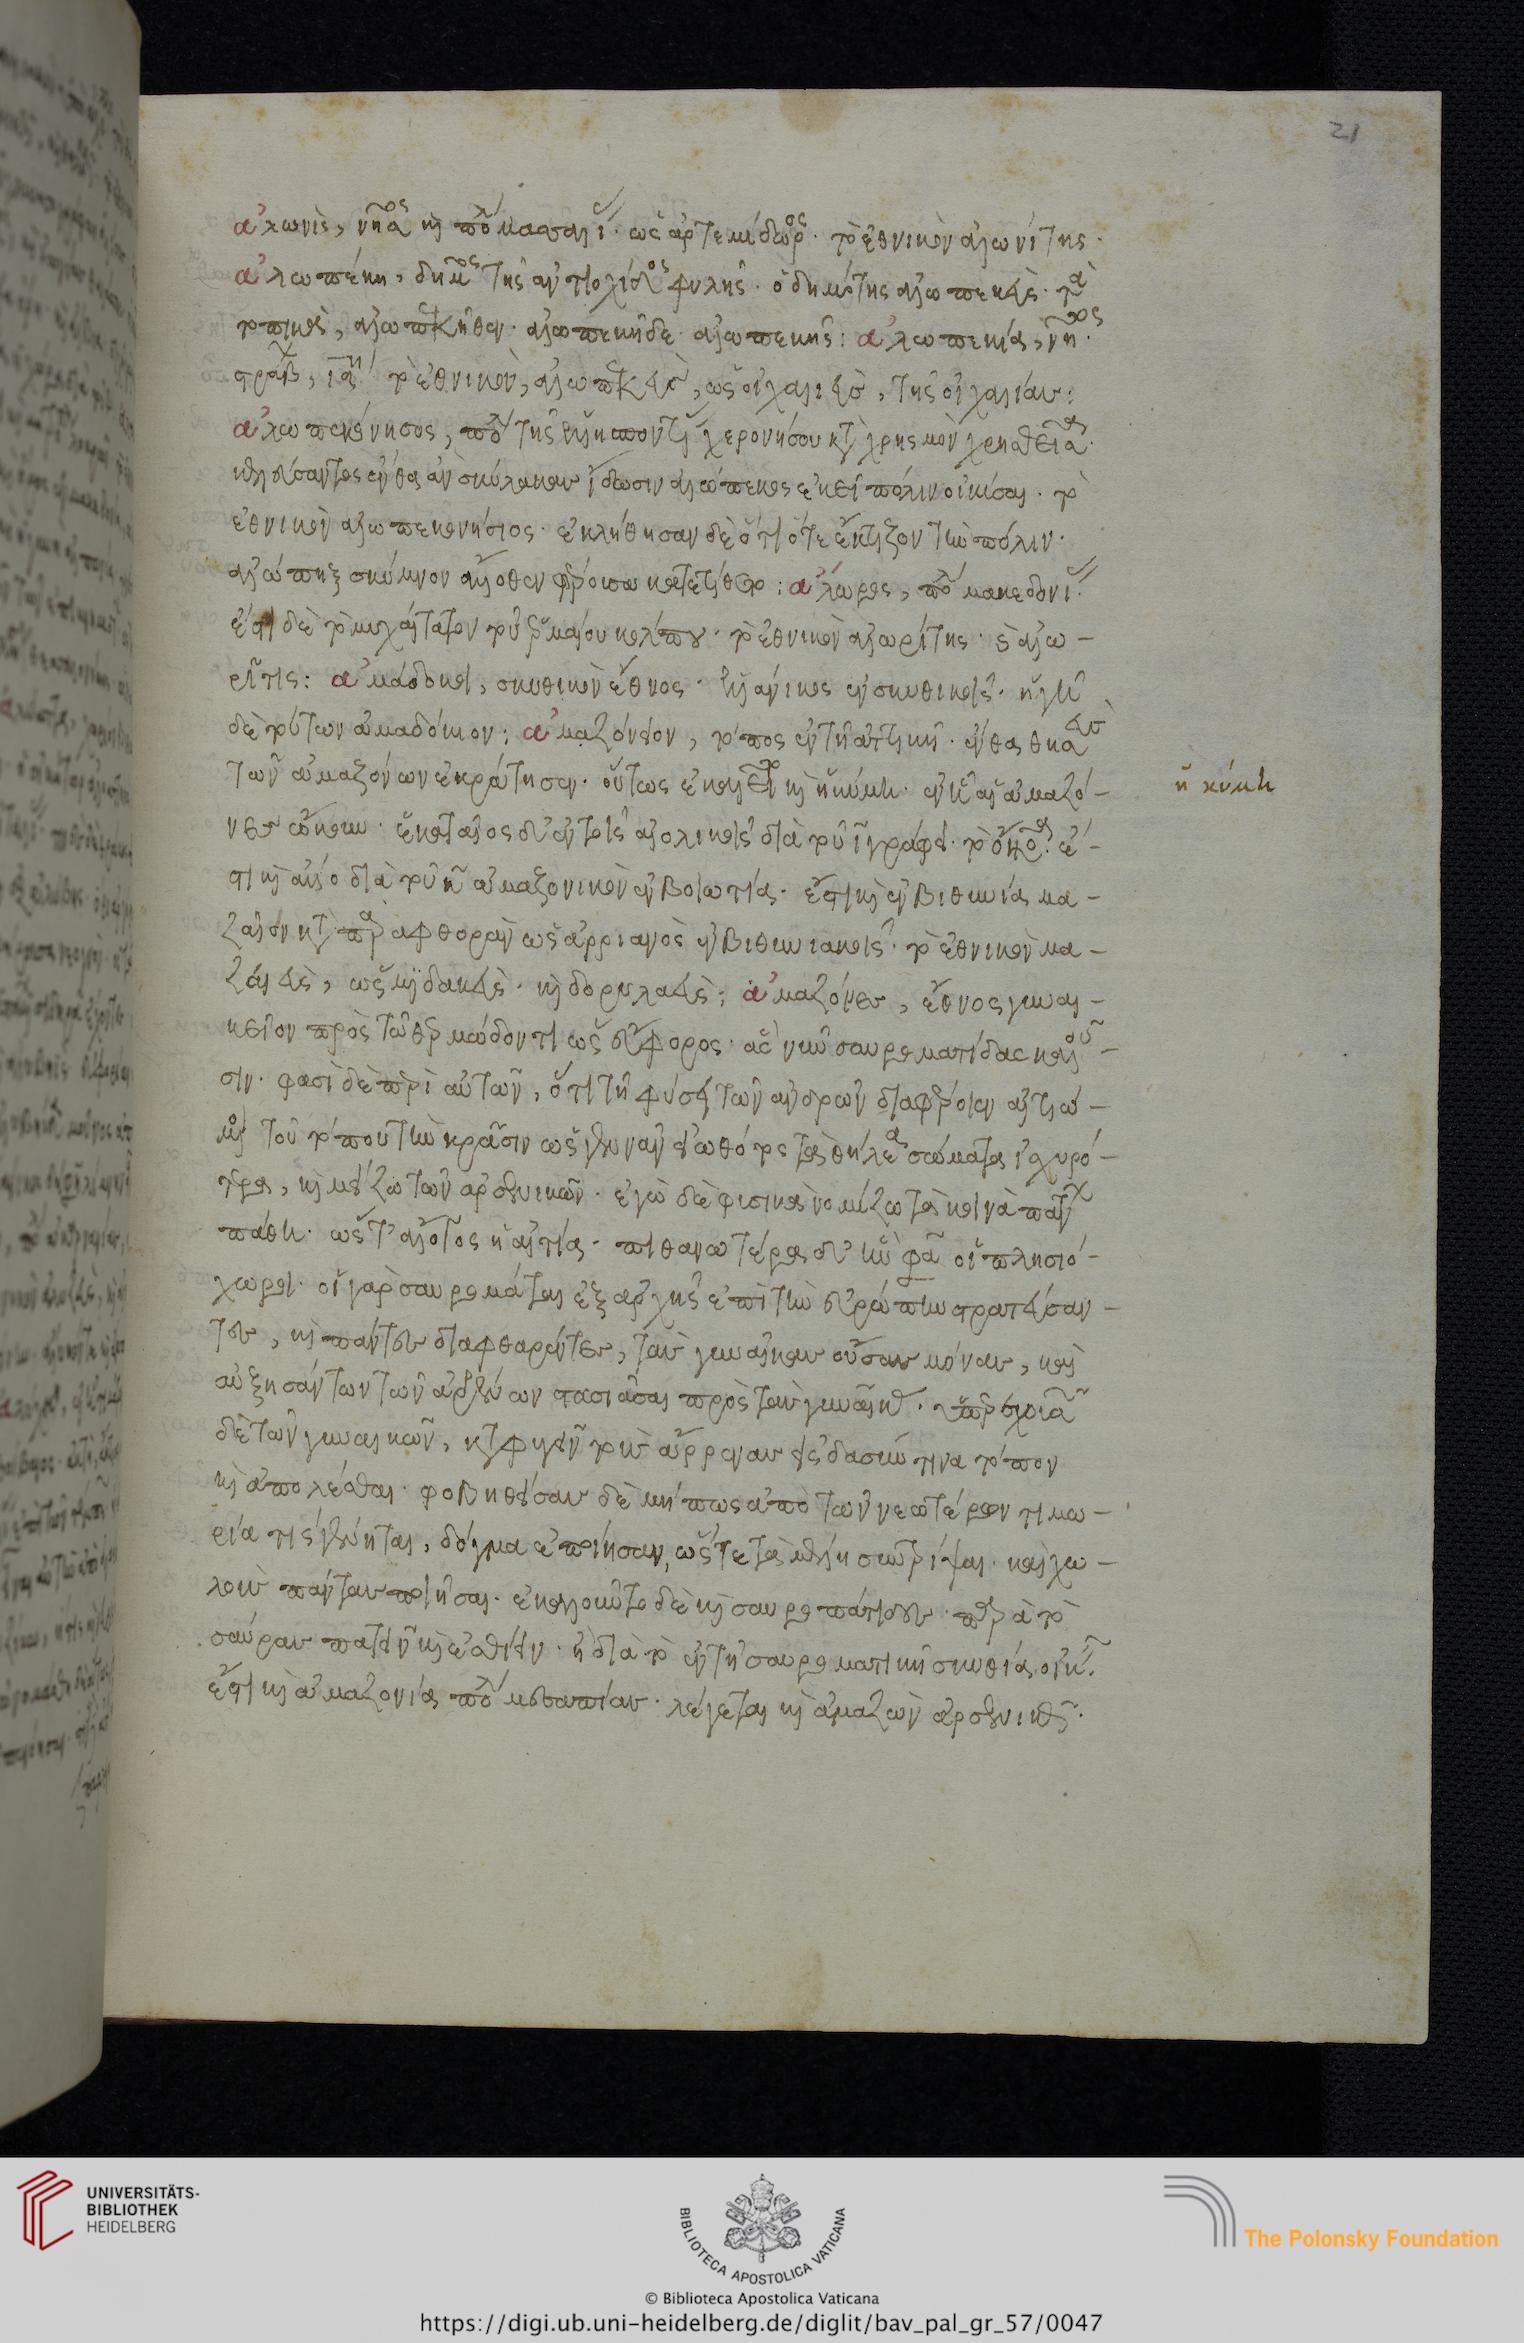 21
ἀλωνὶς, νῆσος καὶ πόλις μασσαλίας. ὡς ἀρτεμίδωρος. τὸ ἐθνικὸν ἀλωνίτης.
ἀλωπέκη, δῆμος τῆς ἀντιοχίδος φυλῆς. ὁ δημότης ἀλωπεκεὺς. τὰ
τοπικὰ, ἀλωπεκῆθεν. ἀλωπεκῆνδε ἀλωπεκῆσι: ἀλωπεκία, νῆσος.
τὸ ἐθνικὸν, ἀλωπεκεὺς, ὡς οἰχαλιεὺς, τῆς οἰχαλίας:
ἀλωπεκόνησος, πόλις τῆς ἑλλησποντίας χερονήσου κατὰ χρησμὸν χρησθεῖσα.
κελεύσαντος ἔνθα ἂν σκύλακας ἴδωσιν ἀλώπεκος ἐκεῖ πόλιν οἰκίσαι. τὸ
ἐθνικὸν ἀλωπεκονήσιος. ἐκλήθησαν δὲ ὅτι ὅτε ἔκτιζον τὴν πόλιν.
ἀλώπηξ σκύμνον ἄλλοθεν φέρουσα κατετίθετο: ἄλωρος, πόλις μακεδονίας.
ἐστὶ δὲ τὸ μυχαίτατον τοῦ θερμαίου κόλπου. τὸ ἐθνικὸν ἀλωρίτης. καὶ ἀλω-
ρῖτις: ἀμάδοκοι, σκυθικὸν ἔθνος. ἑλλάνικος ἐν σκυθικοῖς. ἡ γῆ
δὲ τούτων ἀμαδόκιον: ἀμαζόνειον, τόπος ἐν τῇ ἀττικῇ. ἔνθα θησεὺς
τῶν ἀμαζόνων ἐκράτησεν. οὕτως ἐκαλεῖτο καὶ ἡ κύμη. ἐν ᾗ αἱ ἀμαζό-
ἡ κύμη
νες ᾤκουν. ἑκαταῖος δ' ἐν τοῖς αἰολικοῖς διὰ τοῦ ῑ γράφει.
τι καὶ ἄλλο διὰ τοῦ κ̄ ἀμαζονικὸν ἐν βοιωτίᾳ. ἔστι καὶ ἐν βιθυνίᾳ μα-
ζαῖον κατὰ παραφθορὰν ὡς ἀρριανὸς ἐν βιθυνιακοῖς. τὸ ἐθνικὸν μα-
ζαιεὺς, ὡς μιδακεὺς. καὶ δορυλαεὺς: ἀμαζόνες, ἔθνος γυναι-
κεῖον πρὸς τῷ θερμώδοντι ὡς ἔφορος. ἃς νῦν σαυροματίδας καλοῦ-
σιν. φασὶ δὲ περὶ αὐτῶν, ὅτι τῇ φύσει τῶν ἀνδρῶν διαφέροιεν αἰτιώ-
μενοι τοῦ τόπου τὴν κρᾶσιν ὡς γεννᾶν εἰωθότος τὰ θήλεα σώματα ἰσχυρό-
τερα, καὶ μείζω τῶν ἀρσενικῶν. ἐγὼ δὲ φυσικὰ νομίζω τὰ κοινὰ πάντων
πάθη. ὥστ' ἄλογος ἡ αἰτία. πιθανωτέρα δ' ἣν φασὶν οἱ πλησιό-
χωροι. οἱ γὰρ σαυρομάται ἐξ ἀρχῆς ἐπὶ τὴν εὐρώπην στρατεύσαν-
τες, καὶ πάντες διαφθαρέντες, τὰς γυναῖκας οὔσας μόνας, καὶ
αὐξησάντων τῶν ἀρσένων στασιάσαι πρὸς τὰς γυναῖκας.
δὲ τῶν γυναικῶν, καταφυγεῖν τοὺς ἄρρενας εἰς δασύν τινα τόπον
καὶ ἀπολέσθαι. φοβηθεῖσαι δὲ μήπως ἀπὸ τῶν νεωτέρων τιμω-
ρία τις γένηται, δόγμα ἐποίησαν, ὥστε τὰ μέλη συντρίψαι. καὶ χω-
λοὺς πάντας ποιῆσαι. ἐκαλοῦντο δὲ καὶ σαυροπάτιδες παρὰ τὸ
σαύρας πατεῖν καὶ ἐσθίειν. ἢ διὰ τὸ ἐν τῇ σαυροματικῇ σκυθίᾳ οἰκεῖν.
ἔστι καὶ ἀμαζονία πόλις μεσσαπίας. λέγεται καὶ ἀμαζὼν ἀρσενικῶς.
UNIVERSITÄTS-
BIBLIOTHEK
HEIDELBERG
BIBLIOTECA APOSTOLICA VATICANA
The Polonsky Foundation
© Biblioteca Apostolica Vaticana
https://digi.ub.uni-heidelberg.de/diglit/bav_pal_gr_57/0047